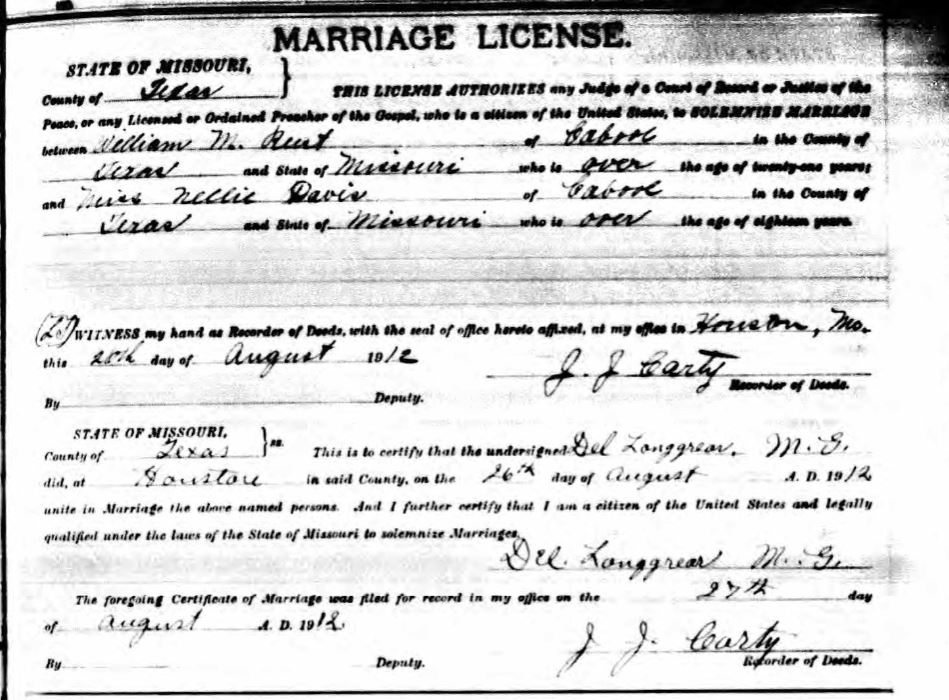 MARRIAGE LICENSE.
STATE OF MISSOURI,
County of Texas } THIS LICENSE AUTHORIZES any Judge of a Court of Record or Justice of the
Peace, or any Licensed or Ordained Preacher of the Gospel, who is a citizen of the United States, to SOLEMNIZE MARRIAGE
between William M. of Cabool in the County of
Texas and State of Missouri who is over the age of twenty-one years;
and Miss Nellie Davis of Cabool in the County of
Texas and State of Missouri who is over the age of eighteen years.
WITNESS my hand as Recorder of Deeds, with the seal of office hereto affixed, at my office in Houston, Mo.
this day of August 1912
J. J. Carty
By Deputy. Recorder of Deeds.
STATE OF MISSOURI,
County of Texas } ss. This is to certify that the undersigned Del Longgrear. M. G.
did, at Houston in said County, on the 26th day of August A. D. 1912
unite in Marriage the above named persons. And I further certify that I am a citizen of the United States and legally
qualified under the laws of the State of Missouri to solemnize Marriages.
Del Longgrear M. G.
The foregoing Certificate of Marriage was filed for record in my office on the 27th day
of August A. D. 1912
J. J. Carty
By Deputy. Recorder of Deeds.